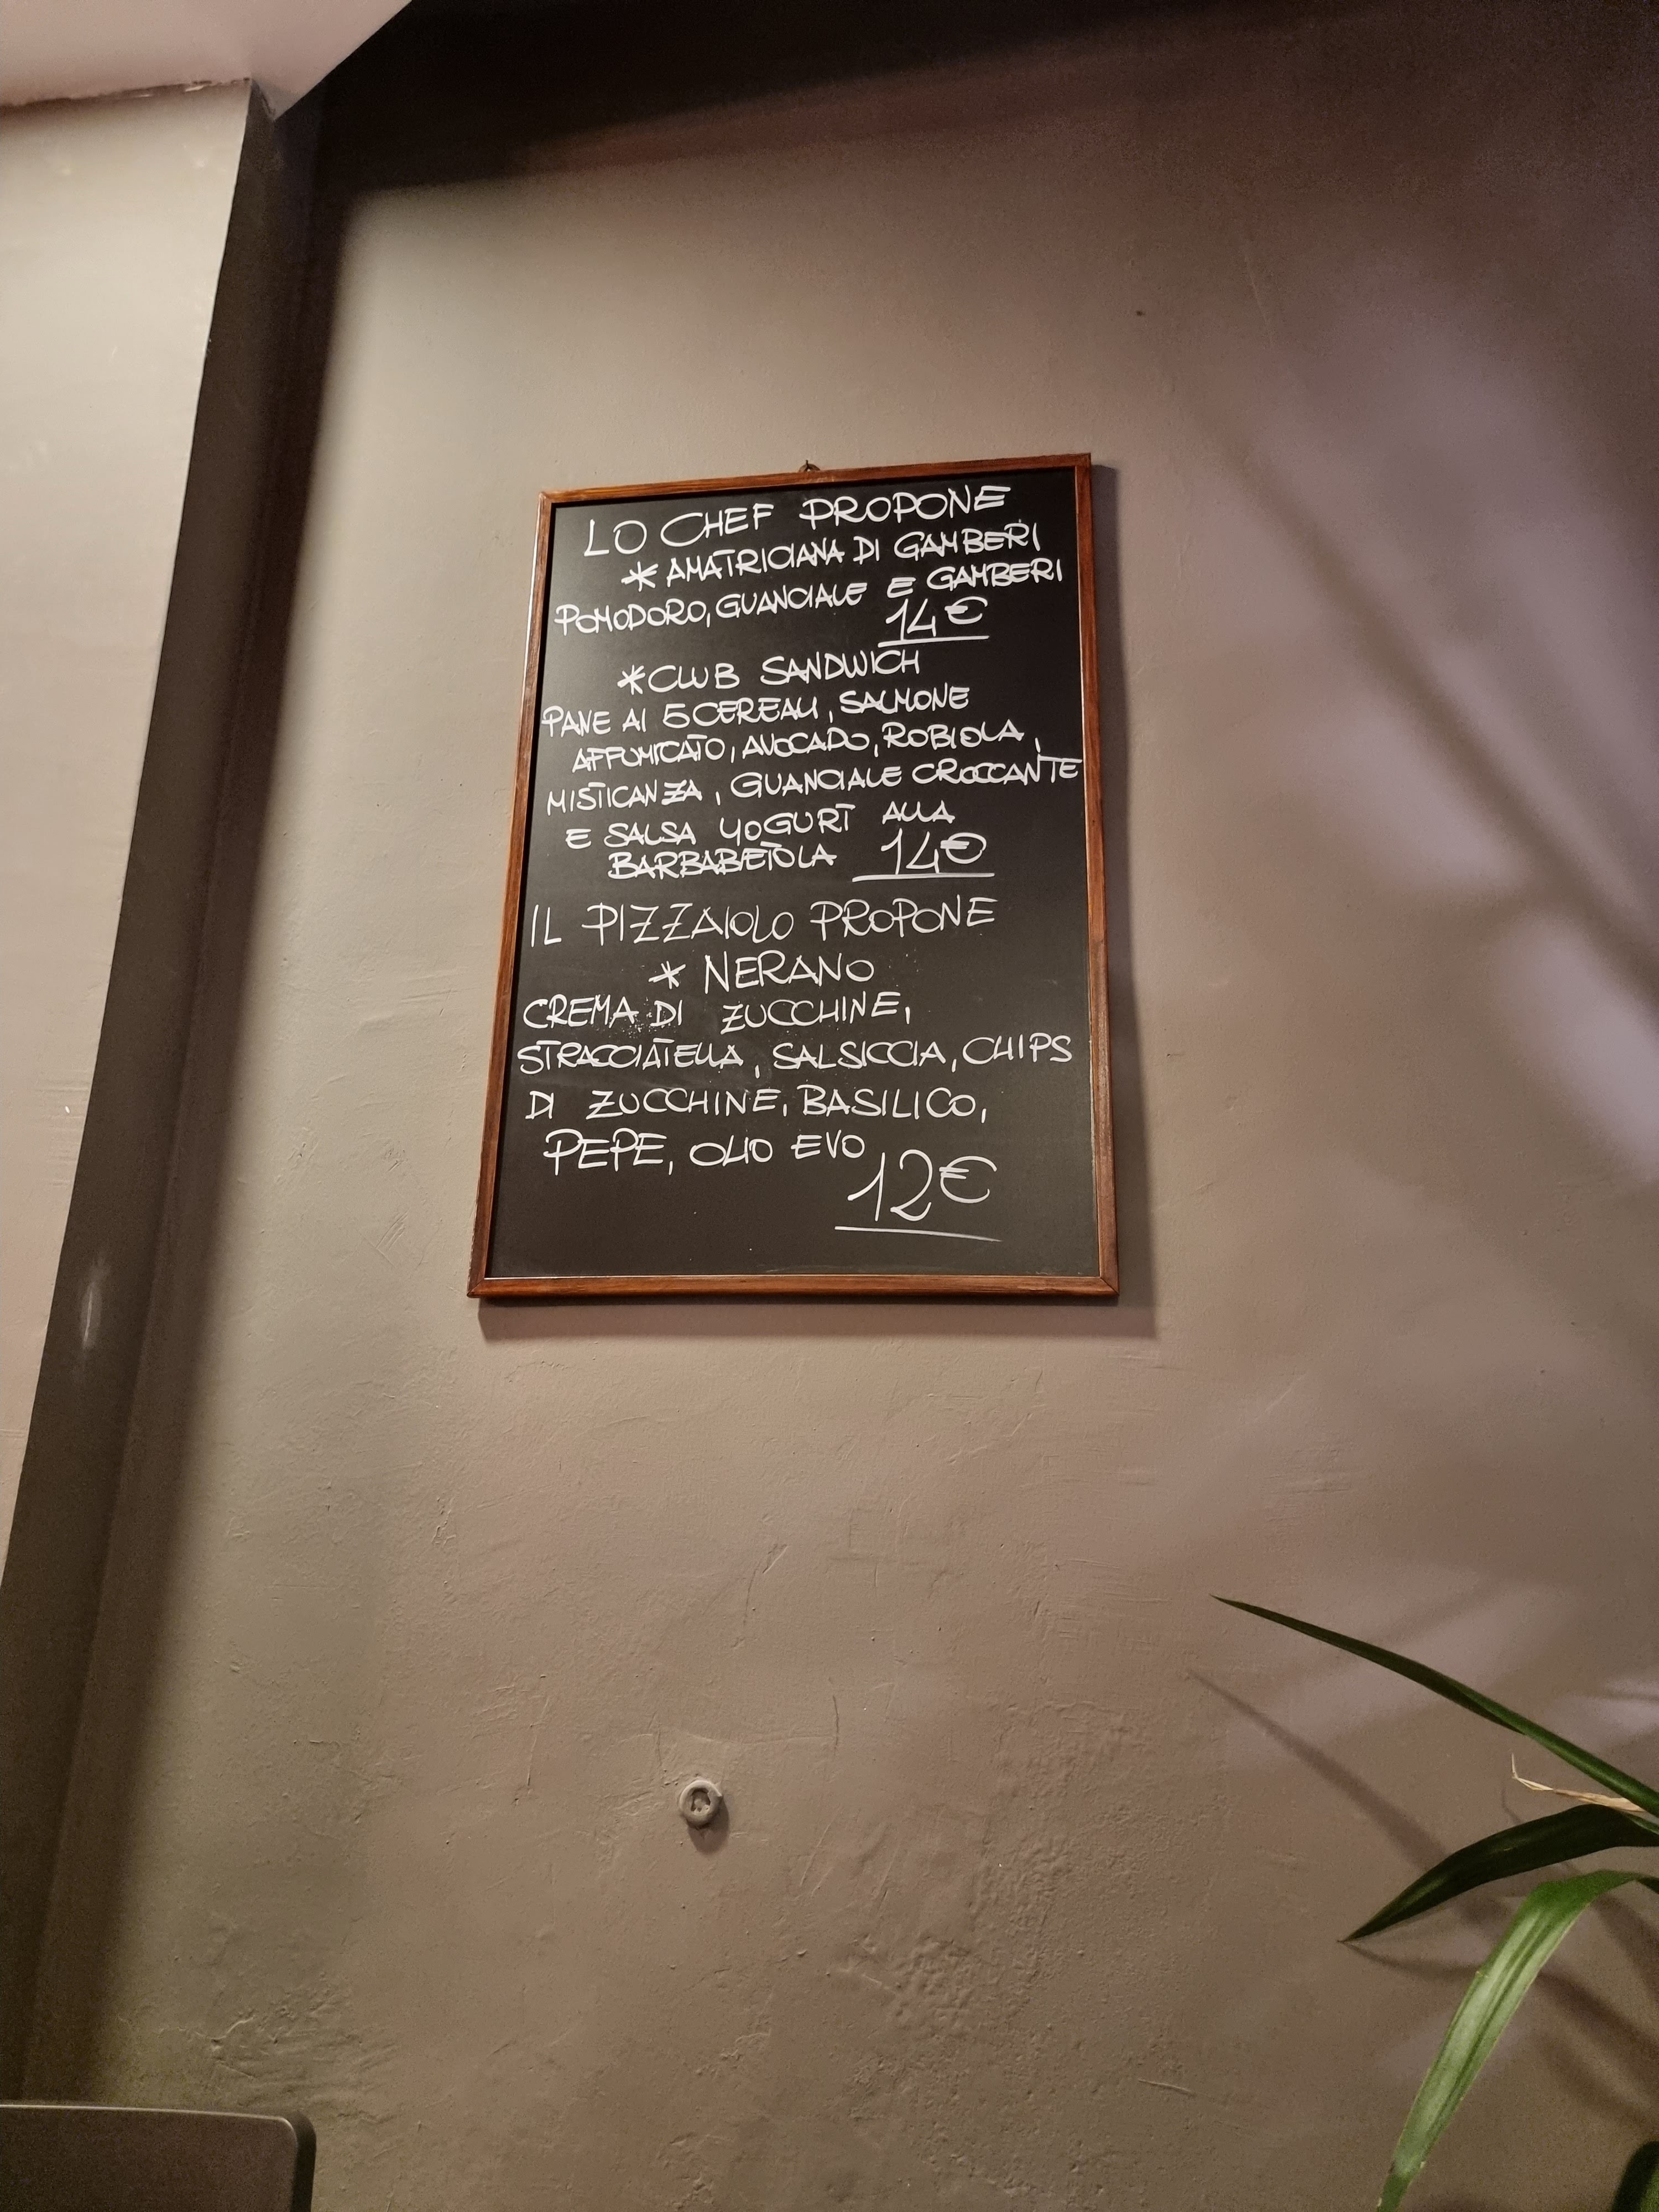 LO CHEF PROPONE
* AMATRICIANA DI GAMBERI
POMODORO, GUANCIALE E GAMBERI
14€
*CLUB SANDWICH
PANE AI 5 CEREALI, SALMONE
AFFUMICATO, AVOCADO, ROBIOLA,
MISTICANZA, GUANCIALE CROCCANTE
E SALSA YOGURT ALLA
BARBABIETOLA 14€
IL PIZZAIOLO PROPONE
* NERANO
CREMA DI ZUCCHINE,
STRACCIATELLA, SALSICCIA, CHIPS
DI ZUCCHINE, BASILICO,
PEPE, OLIO EVO
12€